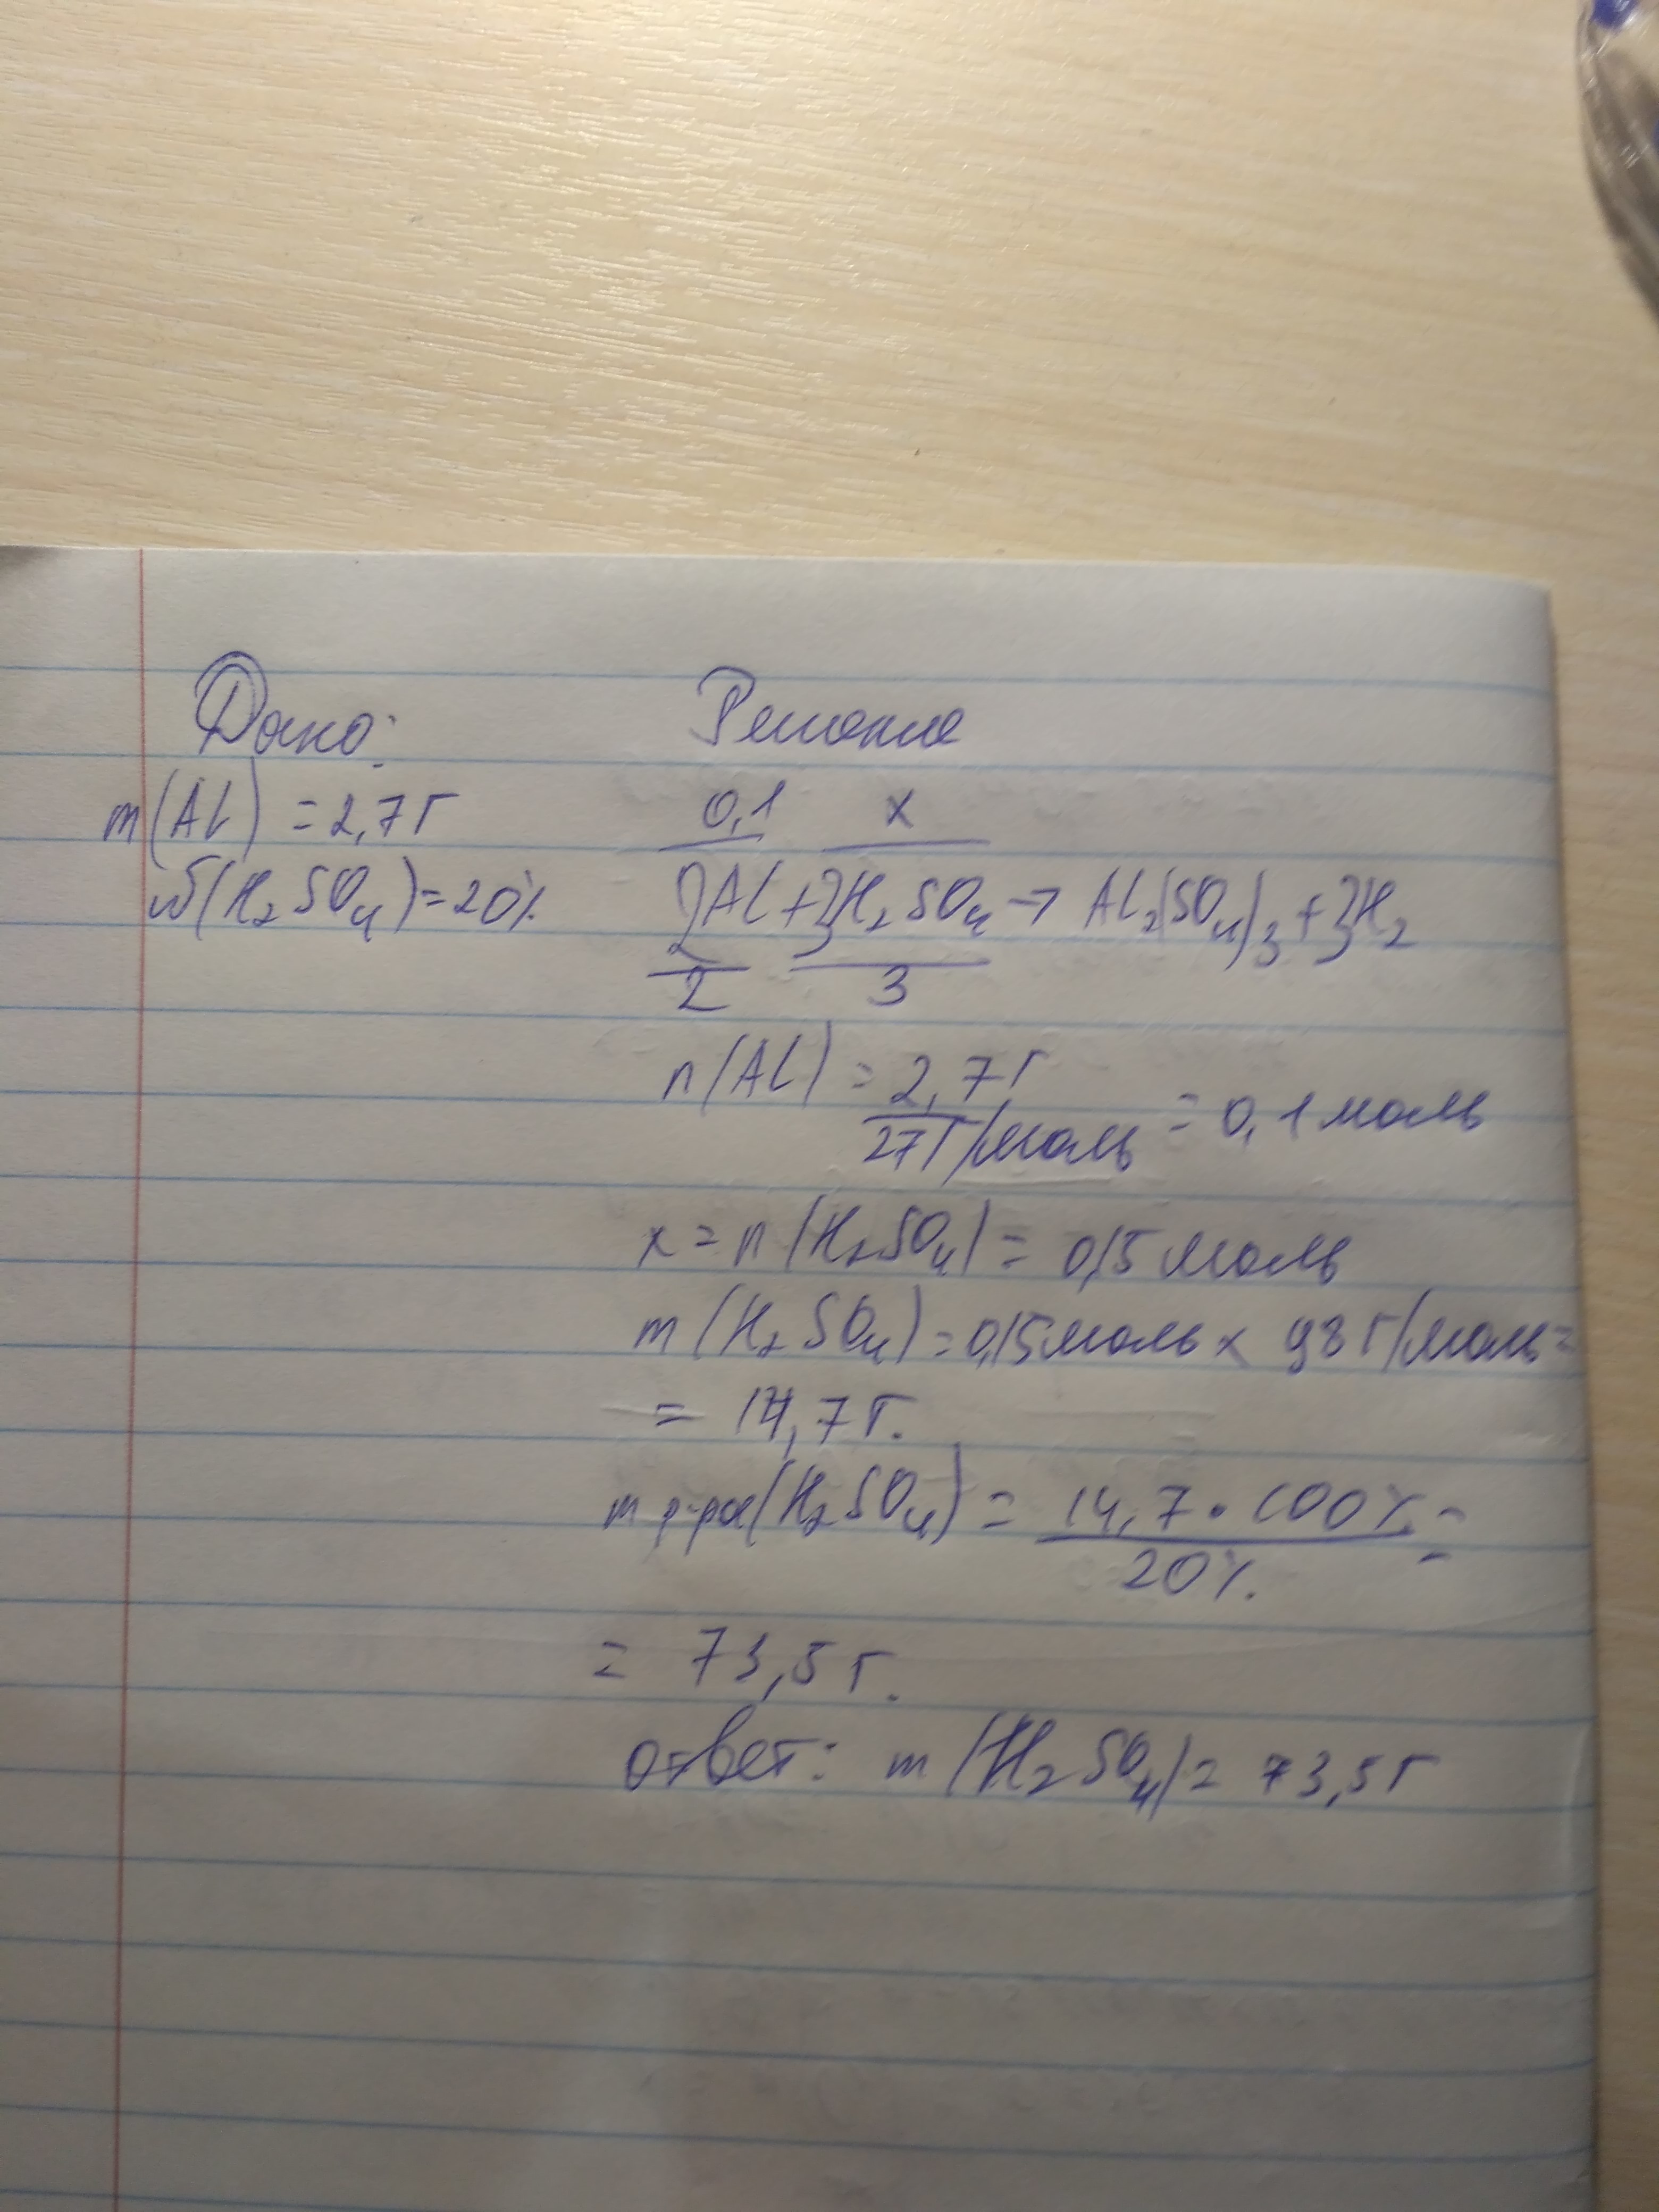 Дано: Решение
m(Al) = 2,7 г 0,1 x
ω(H₂SO₄) = 20% 2Al + 3H₂SO₄ → Al₂(SO₄)₃ + 3H₂
2 3
n(Al) = 2,7 г / 27 г/моль = 0,1 моль
x = n(H₂SO₄) = 0,15 моль
m(H₂SO₄) = 0,15 моль x 98 г/моль =
= 14,7 г.
m р-ра(H₂SO₄) = 14,7 • 100% / 20% =
= 73,5 г.
ответ: m(H₂SO₄) = 73,5 г